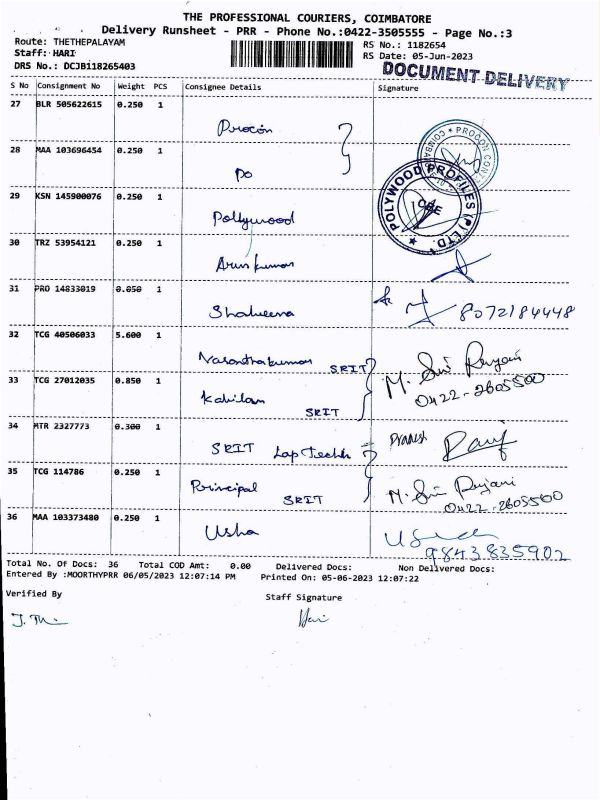 THE PROFESSIONAL COURIERS, COIMBATORE
Delivery Runsheet - PRR - Phone No.:0422-3505555 - Page No.:3
Route: THETHEPALAYAM RS No.: 1182654
Staff: HARI RS Date: 05-Jun-2023
DRS No.: DCJB118265403 DOCUMENT DELIVERY
S No Consignment No Weight PCS Consignee Details Signature
27 BLR 505622615 0.250 1 Procon
28 MAA 103696454 0.250 1 Do
29 KSN 145900076 0.250 1 Pollywood
POLYWOOD PROFILES (P) LTD. CBE
30 TRZ 53954121 0.250 1 Arunkumar
31 PRO 14833019 0.050 1 Shaheena 8072184448
32 TCG 40506033 5.600 1 Vasanthakumar SRIT
33 TCG 27012035 0.850 1 Kabilan SRIT 0422-2605500
34 MTR 2327773 0.300 1 SRIT Lap Techh
35 TCG 114786 0.250 1 Principal SRIT 0422-2605500
36 MAA 103373480 0.250 1 Usha Usha
9843835902
Total No. Of Docs: 36 Total COD Amt: 0.00 Delivered Docs: Non Delivered Docs:
Entered By :MOORTHYPRR 06/05/2023 12:07:14 PM Printed On: 05-06-2023 12:07:22
Verified By Staff Signature
Hari